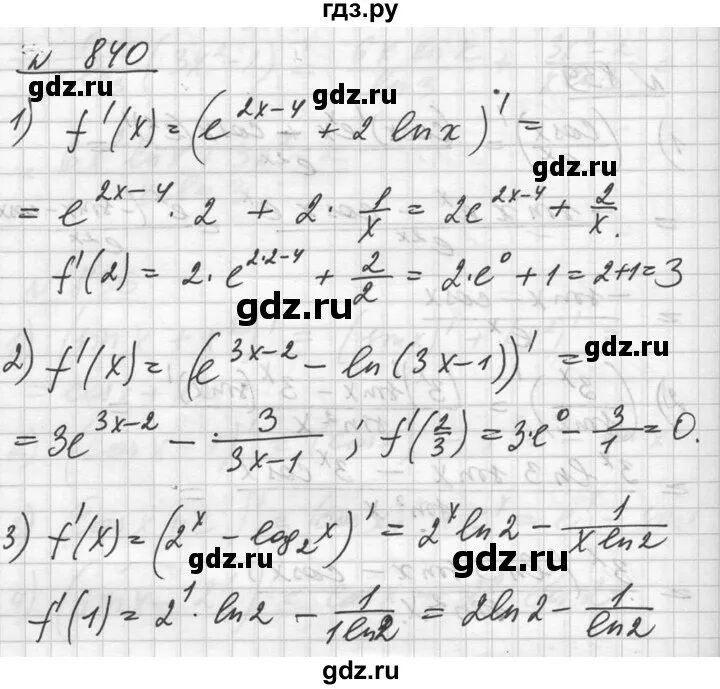 гдз.ру
N 840
gdz.ru
gdz.ru
1) f'(x) = (e^{2x-4} + 2 ln x)' =
gdz.ru
= e^{2x-4} · 2 + 2 · 1/x = 2e^{2x-4} + 2/x.
f'(2) = 2 · e^{2·2-4} + 2/2 = 2·e^0 + 1 = 2+1 = 3
gdz.ru
gdz.ru
2) f'(x) = (e^{3x-2} - ln(3x-1))' =
= 3e^{3x-2} - 3/(3x-1); f'(2/3) = 3·e^0 - 3/1 = 0.
3) f'(x) = (2^x - log_2 x)' = 2^x ln2 - 1/(x ln2)
gdz.ru
gdz.ru
f'(1) = 2^1 · ln2 - 1/(1 ln2) = 2ln2 - 1/ln2
gdz.ru
gdz.ru
gdz.ru